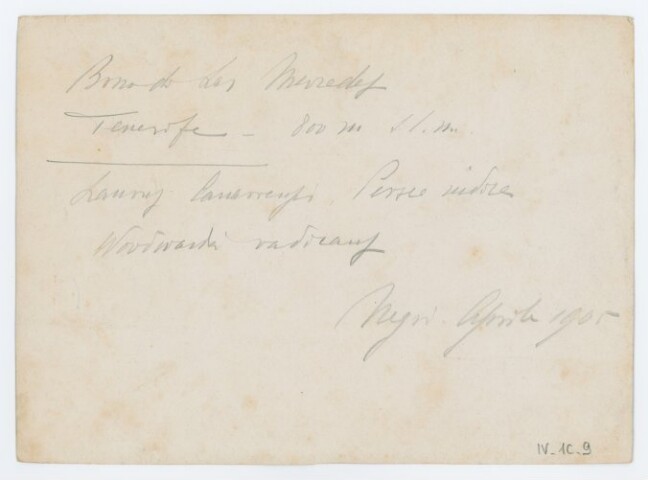 Bosco de Las Mercedes
Tenerife - 800 m s.l.m.
Laurus Canariensis Persea indica
Woodwardia radicans
Negri. Aprile 1905
IV-1C-9